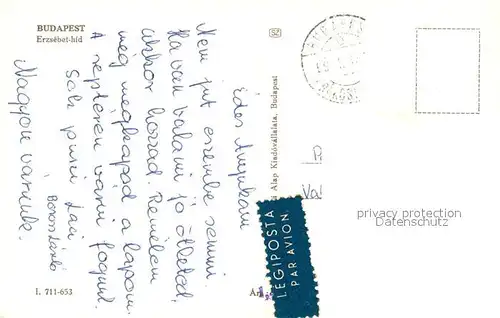 BUDAPEST
Erzsébet-híd
Édes Anyukám
Nem jut eszembe semmi.
Ha van valami jó ötleted,
akkor hozzad. Remélem
meg megkapod a lapom.
A reptéren várni fogunk.
Sok puszi Laci
Nagyon várunk.
Alap Kiadóvállalata, Budapest
LEGIPOSTA
PAR AVION
I. 711-653
privacy protection
Datenschutz